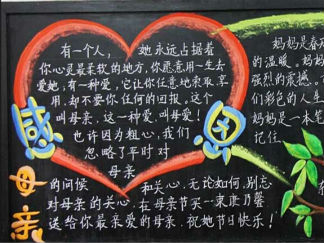 有一个人，她永远占据着
你心灵最柔软的地方，你愿意用一生去
爱她；有一种爱，它让你任意地索取享
用，却不要你任何的回报，这个
人叫母亲，这一种爱，叫母爱！
也许因为粗心，我们
忽略了平时对
母亲
的问候和关心，无论如何，别忘
对母亲的关心。在母亲节买一束康乃馨
送给你最亲爱的母亲，祝她节日快乐！
感恩
母亲
妈妈是春天
的温暖。妈妈
强烈的震撼。
们彩色的人生
妈妈是一本
记住